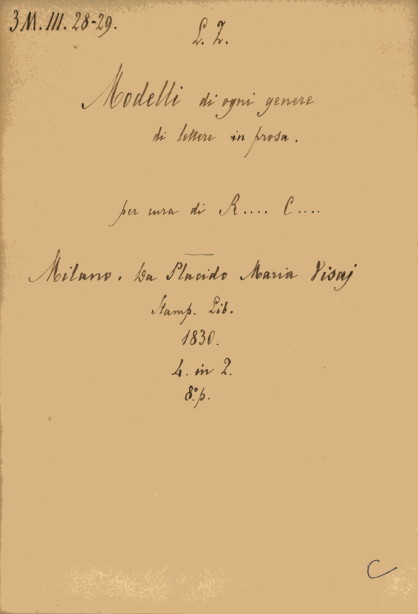 3 M. III. 28-29.
L. Z.
Modelli di ogni genere
di lettere in prosa.
per cura di R.... C....
Milano. Da Placido Maria Visaj
Stamp. Lib.
1830.
4. in 2.
8.° p.
C